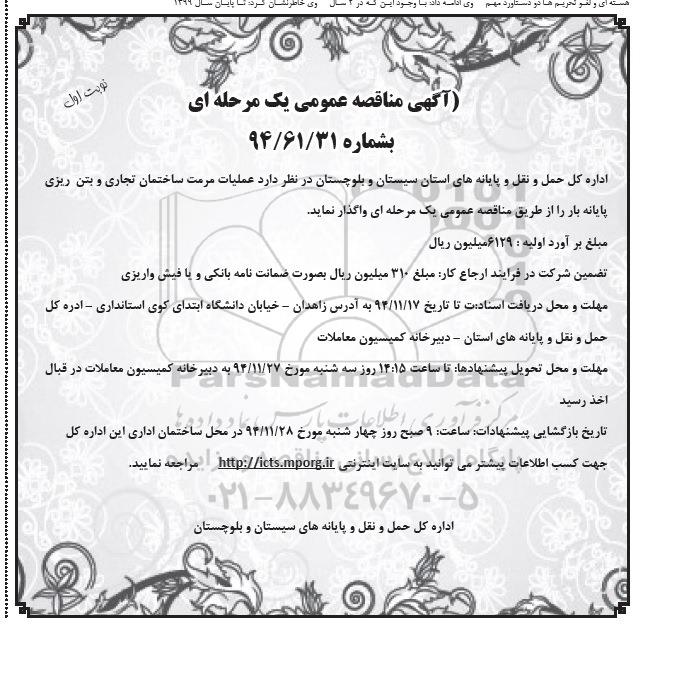 هسته ای و لغو تحریم ها دو دستاورد مهم وی ادامه داد: با وجود این که در ۲ سال وی خاطرنشان کرد: تا پایان سال ۱۳۹۹
نوبت اول
(آگهی مناقصه عمومی یک مرحله ای
بشماره ۹۴/۶۱/۳۱
اداره کل حمل و نقل و پایانه های استان سیستان و بلوچستان در نظر دارد عملیات مرمت ساختمان تجاری و بتن ریزی
پایانه بار را از طریق مناقصه عمومی یک مرحله ای واگذار نماید.
مبلغ بر آورد اولیه : ۶۱۲۹میلیون ریال
تضمین شرکت در فرایند ارجاع کار: مبلغ ۳۱۰ میلیون ریال بصورت ضمانت نامه بانکی و یا فیش واریزی
مهلت و محل دریافت اسناد:ت تا تاریخ ۹۴/۱۱/۱۷ به آدرس زاهدان – خیابان دانشگاه ابتدای کوی استانداری – ادره کل
حمل و نقل و پایانه های استان – دبیرخانه کمیسیون معاملات
مهلت و محل تحویل پیشنهادها: تا ساعت ۱۴:۱۵ روز سه شنبه مورخ ۹۴/۱۱/۲۷ به دبیرخانه کمیسیون معاملات در قبال
اخذ رسید
ParsNamadData
مرکز فرآوری اطلاعات پارس نماد داده ها
تاریخ بازگشایی پیشنهادات: ساعت: ۹ صبح روز چهار شنبه مورخ ۹۴/۱۱/۲۸ در محل ساختمان اداری این اداره کل
پایگاه اطلاع رسانی مناقصه و مزایده
جهت کسب اطلاعات پیشتر می توانید به سایت اینترنتی http://icts.mporg.ir مراجعه نمایید.
۰۲۱-۸۸۳۴۹۶۷۰-۵
اداره کل حمل و نقل و پایانه های سیستان و بلوچستان